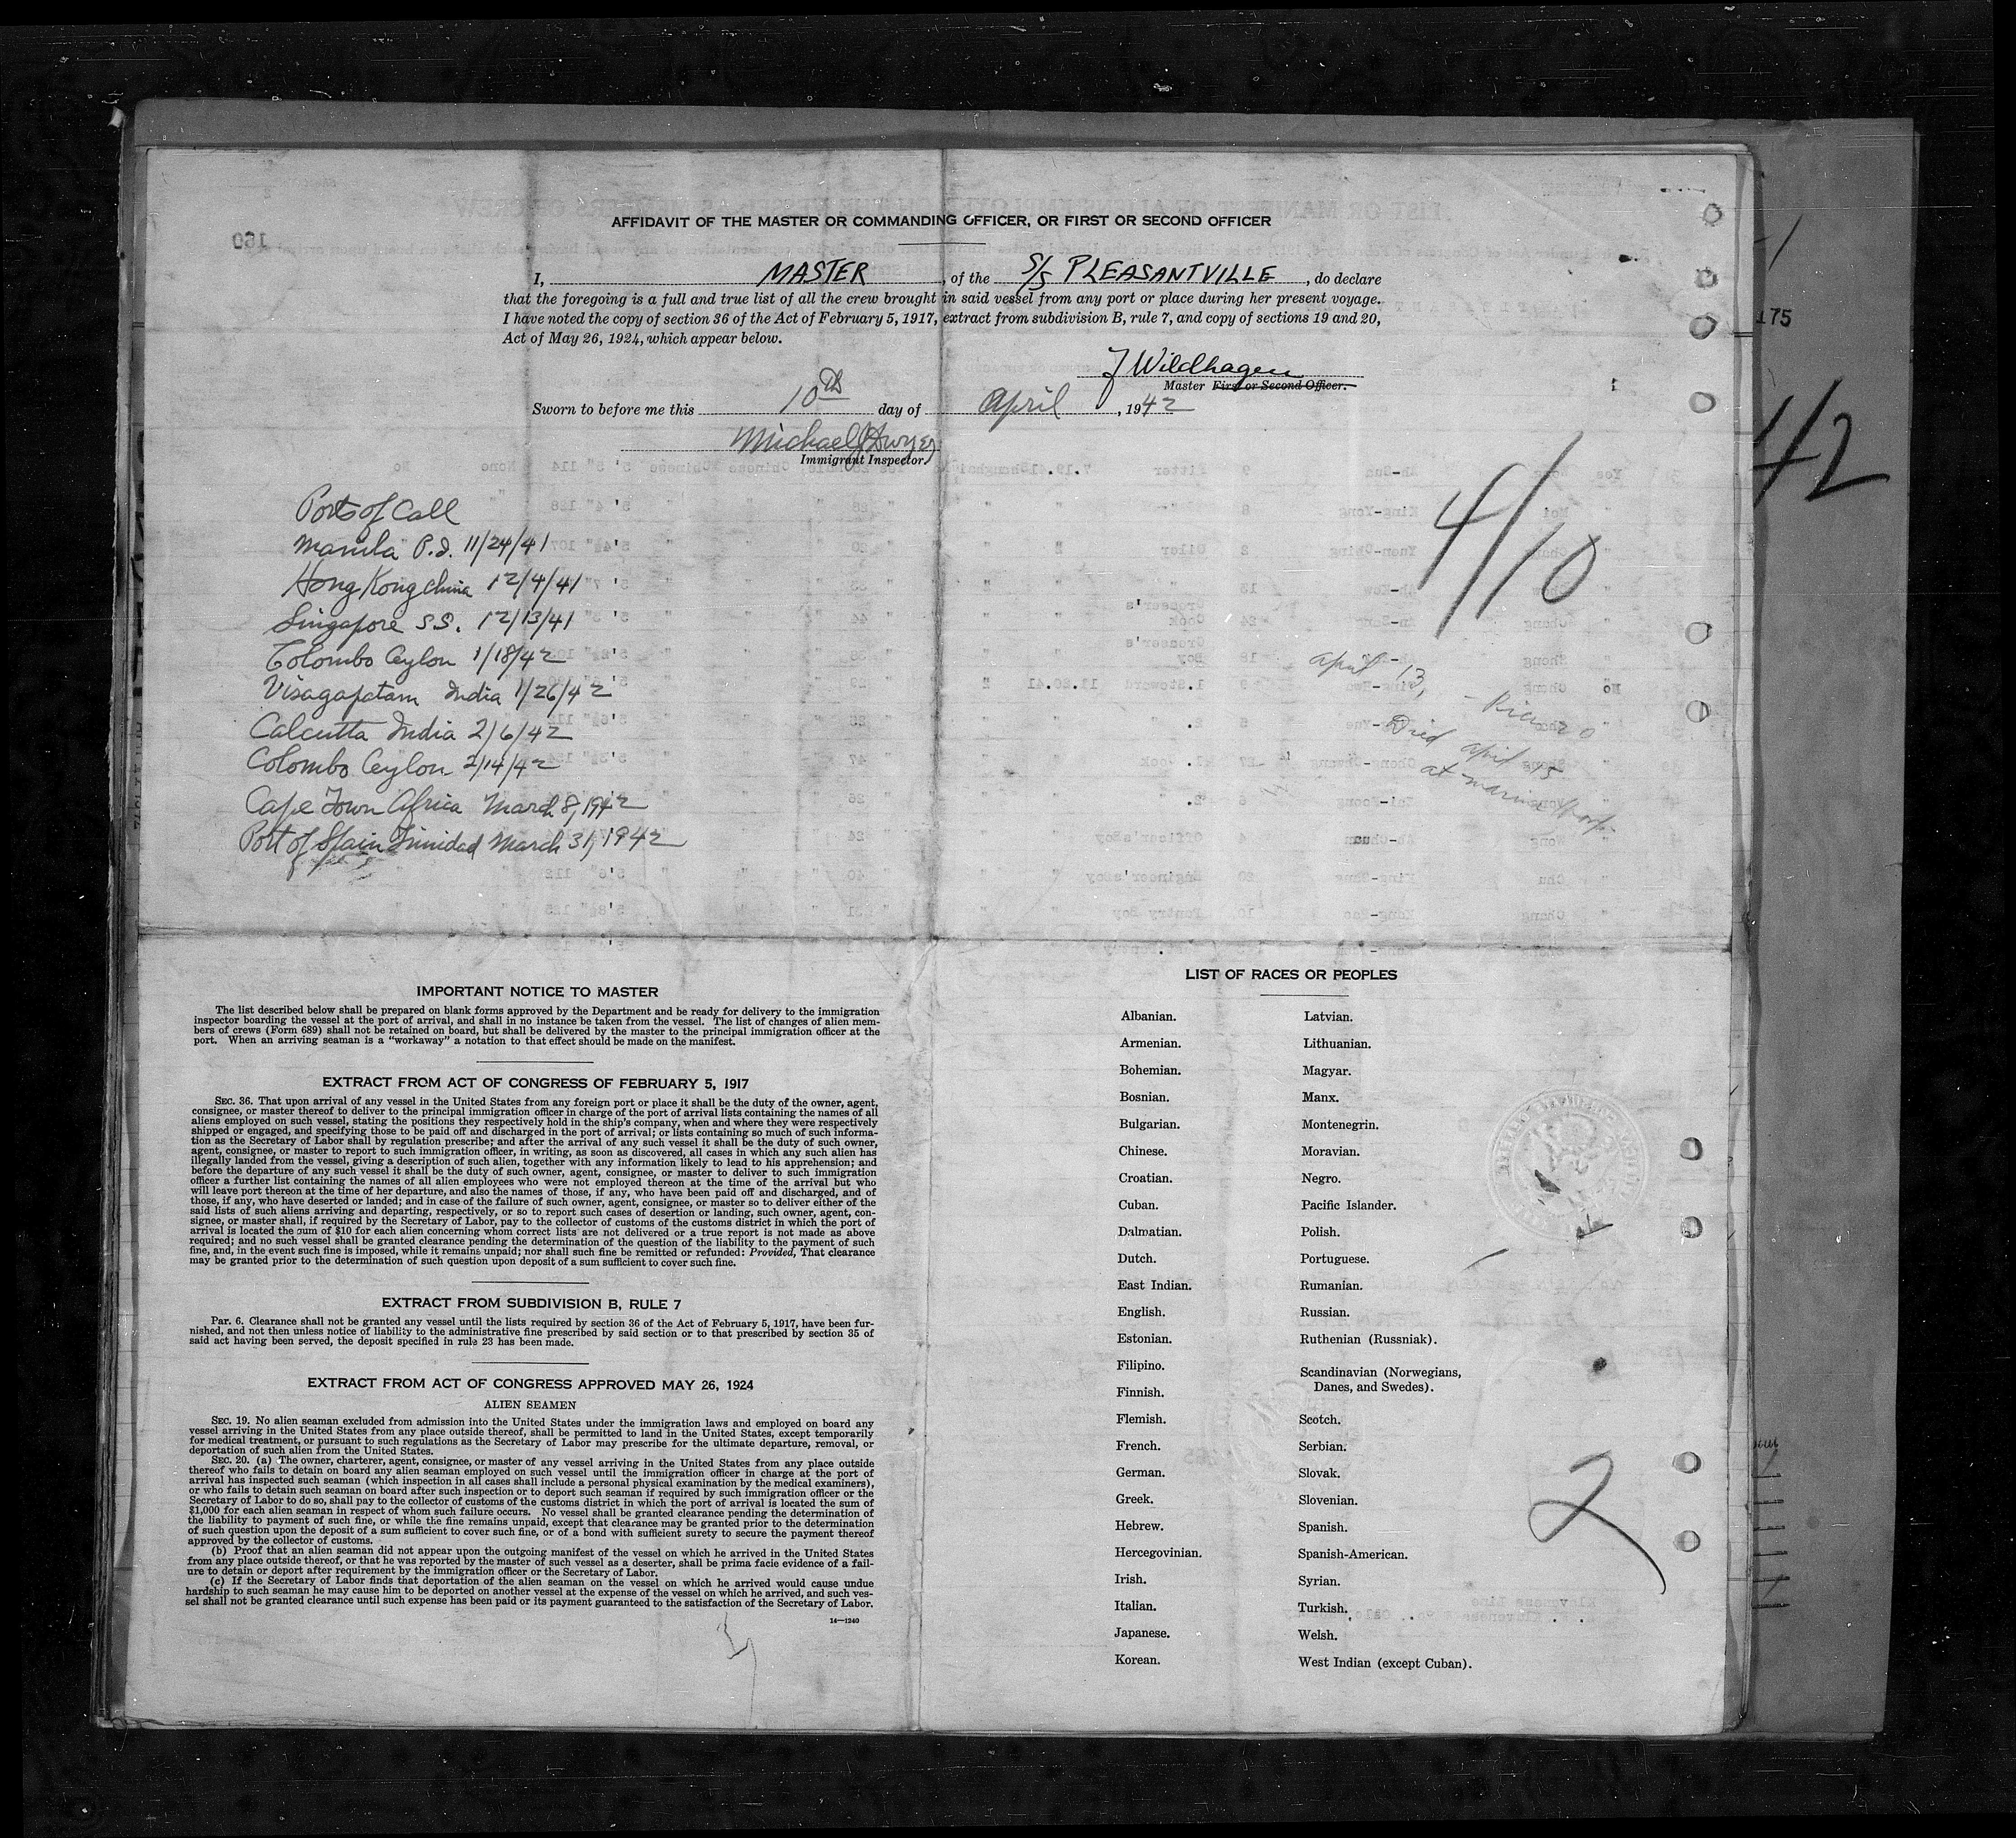 AFFIDAVIT OF THE MASTER OR COMMANDING OFFICER, OR FIRST OR SECOND OFFICER
I, MASTER, of the S/S PLEASANTVILLE, do declare
that the foregoing is a full and true list of all the crew brought in said vessel from any port or place during her present voyage.
I have noted the copy of section 36 of the Act of February 5, 1917, extract from subdivision B, rule 7, and copy of sections 19 and 20,
Act of May 26, 1924, which appear below.
J Wildhagen
Master First or Second Officer.
Sworn to before me this 10th day of April, 1942
Michael J Dwyer
Immigrant Inspector
175
42
4/10
Ports of Call
Manila P.I. 11/24/41
Hong Kong China 12/4/41
Singapore S.S. 12/13/41
Colombo Ceylon 1/18/42
Visagapatam India 1/26/42
Calcutta India 2/6/42
Colombo Ceylon 2/14/42
Cape Town Africa March 8, 1942
Port of Spain Trinidad March 31, 1942
April 13,
Died April 15
at marine Hosp.
IMPORTANT NOTICE TO MASTER
The list described below shall be prepared on blank forms approved by the Department and be ready for delivery to the immigration
inspector boarding the vessel at the port of arrival, and shall in no instance be taken from the vessel. The list of changes of alien mem-
bers of crews (Form 689) shall not be retained on board, but shall be delivered by the master to the principal immigration officer at the
port. When an arriving seaman is a "workaway" a notation to that effect should be made on the manifest.
EXTRACT FROM ACT OF CONGRESS OF FEBRUARY 5, 1917
SEC. 36. That upon arrival of any vessel in the United States from any foreign port or place it shall be the duty of the owner, agent,
consignee, or master thereof to deliver to the principal immigration officer in charge of the port of arrival lists containing the names of all
aliens employed on such vessel, stating the positions they respectively hold in the ship's company, when and where they were respectively
shipped or engaged, and specifying those to be paid off and discharged in the port of arrival; or lists containing so much of such informa-
tion as the Secretary of Labor shall by regulation prescribe; and after the arrival of any such vessel it shall be the duty of such owner,
agent, consignee, or master to report to such immigration officer, in writing, as soon as discovered, all cases in which any such alien has
illegally landed from the vessel, giving a description of such alien, together with any information likely to lead to his apprehension; and
before the departure of any such vessel it shall be the duty of such owner, agent, consignee, or master to deliver to such immigration
officer a further list containing the names of all alien employees who were not employed thereon at the time of the arrival but who
will leave port thereon at the time of her departure, and also the names of those, if any, who have been paid off and discharged, and of
those, if any, who have deserted or landed; and in case of the failure of such owner, agent, consignee, or master so to deliver either of the
said lists of such aliens arriving and departing, respectively, or so to report such cases of desertion or landing, such owner, agent, con-
signee, or master shall, if required by the Secretary of Labor, pay to the collector of customs of the customs district in which the port of
arrival is located the sum of $10 for each alien concerning whom correct lists are not delivered or a true report is not made as above
required; and no such vessel shall be granted clearance pending the determination of the question of the liability to the payment of such
fine, and, in the event such fine is imposed, while it remains unpaid; nor shall such fine be remitted or refunded: Provided, That clearance
may be granted prior to the determination of such question upon deposit of a sum sufficient to cover such fine.
EXTRACT FROM SUBDIVISION B, RULE 7
Par. 6. Clearance shall not be granted any vessel until the lists required by section 36 of the Act of February 5, 1917, have been fur-
nished, and not then unless notice of liability to the administrative fine prescribed by said section or to that prescribed by section 35 of
said act having been served, the deposit specified in rule 23 has been made.
EXTRACT FROM ACT OF CONGRESS APPROVED MAY 26, 1924
ALIEN SEAMEN
SEC. 19. No alien seaman excluded from admission into the United States under the immigration laws and employed on board any
vessel arriving in the United States from any place outside thereof, shall be permitted to land in the United States, except temporarily
for medical treatment, or pursuant to such regulations as the Secretary of Labor may prescribe for the ultimate departure, removal, or
deportation of such alien from the United States.
SEC. 20. (a) The owner, charterer, agent, consignee, or master of any vessel arriving in the United States from any place outside
thereof who fails to detain on board any alien seaman employed on such vessel until the immigration officer in charge at the port of
arrival has inspected such seaman (which inspection in all cases shall include a personal physical examination by the medical examiners),
or who fails to detain such seaman on board after such inspection or to deport such seaman if required by such immigration officer or the
Secretary of Labor to do so, shall pay to the collector of customs of the customs district in which the port of arrival is located the sum of
$1,000 for each alien seaman in respect of whom such failure occurs. No vessel shall be granted clearance pending the determination of
the liability to payment of such fine, or while the fine remains unpaid, except that clearance may be granted prior to the determination
of such question upon the deposit of a sum sufficient to cover such fine, or of a bond with sufficient surety to secure the payment thereof
approved by the collector of customs.
(b) Proof that an alien seaman did not appear upon the outgoing manifest of the vessel on which he arrived in the United States
from any place outside thereof, or that he was reported by the master of such vessel as a deserter, shall be prima facie evidence of a fail-
ure to detain or deport after requirement by the immigration officer or the Secretary of Labor.
(c) If the Secretary of Labor finds that deportation of the alien seaman on the vessel on which he arrived would cause undue
hardship to such seaman he may cause him to be deported on another vessel at the expense of the vessel on which he arrived, and such ves-
sel shall not be granted clearance until such expense has been paid or its payment guaranteed to the satisfaction of the Secretary of Labor.
14—1240
LIST OF RACES OR PEOPLES
Albanian.
Armenian.
Bohemian.
Bosnian.
Bulgarian.
Chinese.
Croatian.
Cuban.
Dalmatian.
Dutch.
East Indian.
English.
Estonian.
Filipino.
Finnish.
Flemish.
French.
German.
Greek.
Hebrew.
Hercegovinian.
Irish.
Italian.
Japanese.
Korean.
Latvian.
Lithuanian.
Magyar.
Manx.
Montenegrin.
Moravian.
Negro.
Pacific Islander.
Polish.
Portuguese.
Rumanian.
Russian.
Ruthenian (Russniak).
Scandinavian (Norwegians,
Danes, and Swedes).
Scotch.
Serbian.
Slovak.
Slovenian.
Spanish.
Spanish-American.
Syrian.
Turkish.
Welsh.
West Indian (except Cuban).
2